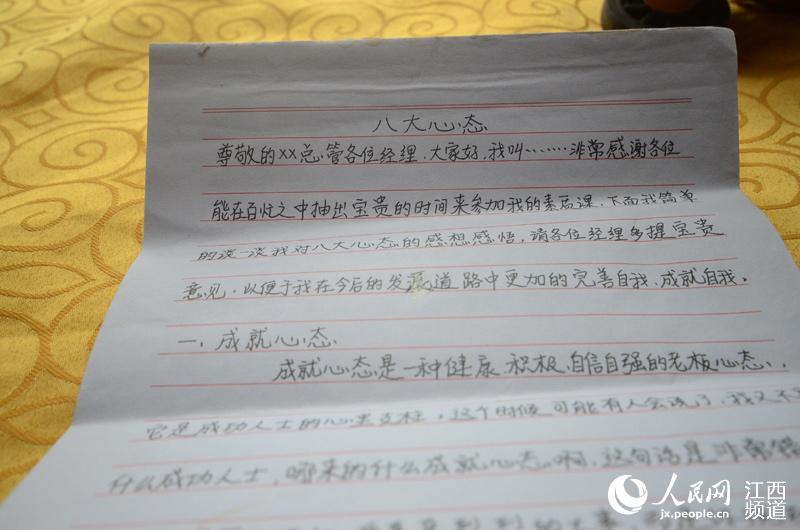 八大心态
尊敬的XX总管各位经理、大家好,我叫………非常感谢各位
能在百忙之中抽出宝贵的时间来参加我的素质课、下面我简单
的谈一谈我对八大心态的感想感悟,请各位经理多提宝贵
意见,以便于我在今后的发展道路中更加的完善自我、成就自我。
一、成就心态
成就心态是一种健康、积极、自信自强的老板心态、
它是成功人士的心里支柱,这个时候可能有人会说了,我又不
什么成功人士,哪来的什么成就心态啊,这句话是非常错
人民网 江西频道
jx.people.cn